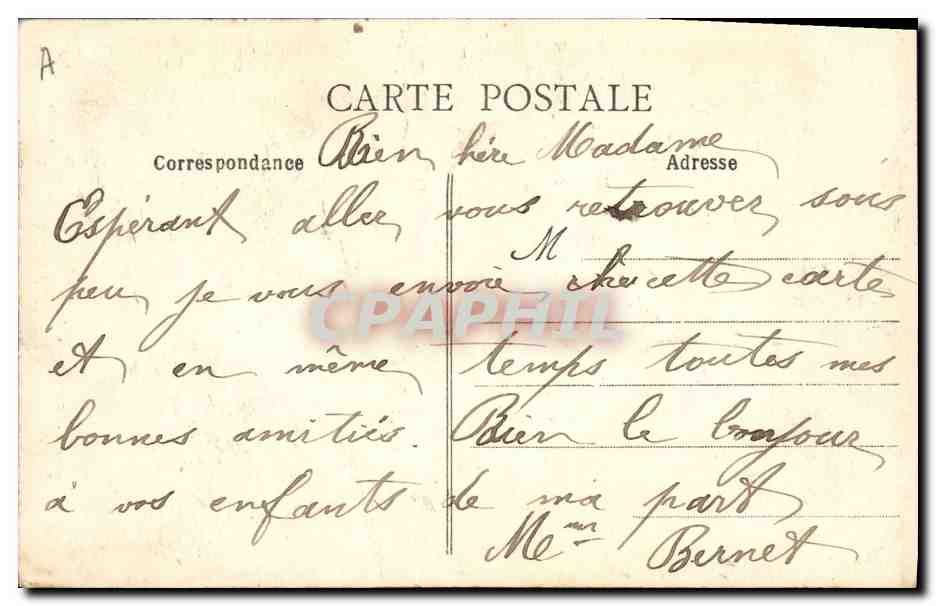 A
CARTE POSTALE
Correspondance
Adresse
Bien hère Madame
Espérant aller vous retrouver sous
peu je vous envoie cette carte
et en même temps toutes mes
bonnes amitiés. Bien le bonjour
à vos enfants de ma part
M Bernet
CPAPHIL